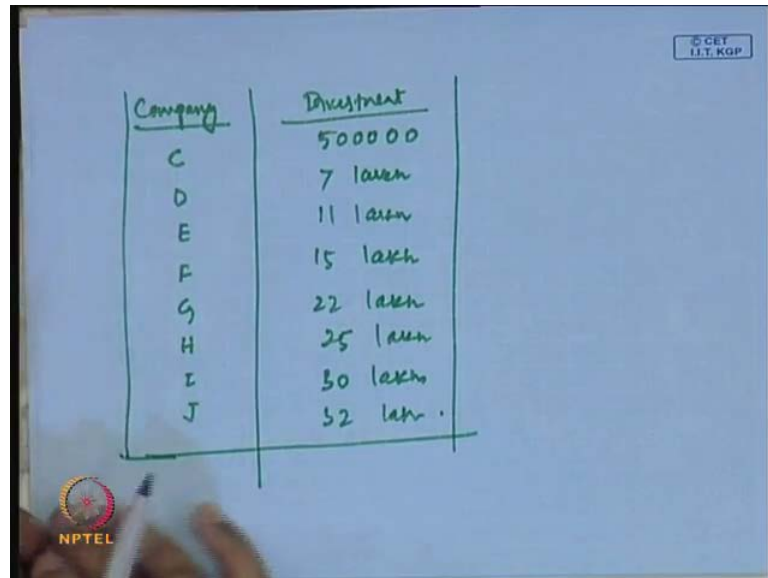 © CET
I.I.T. KGP
Company Investment
C 500000
D 7 lakh
E 11 lakh
F 15 lakh
G 22 lakh
H 25 lakh
I 30 lakh
J 32 lakh.
NPTEL